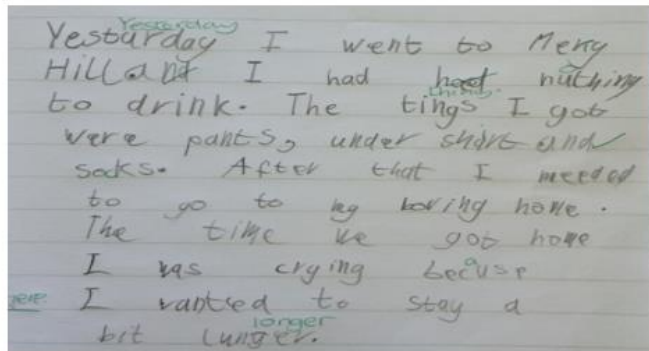 Yesterday
Yesturday I went to Merry
Hill and I had nuthing
to drink. The tings I got
things.
were pants, under shirt and
socks. After that I meeded
to go to my boring home.
The time we got home
I was crying becuse
a
I wanted to stay a
longer
bit lunger.